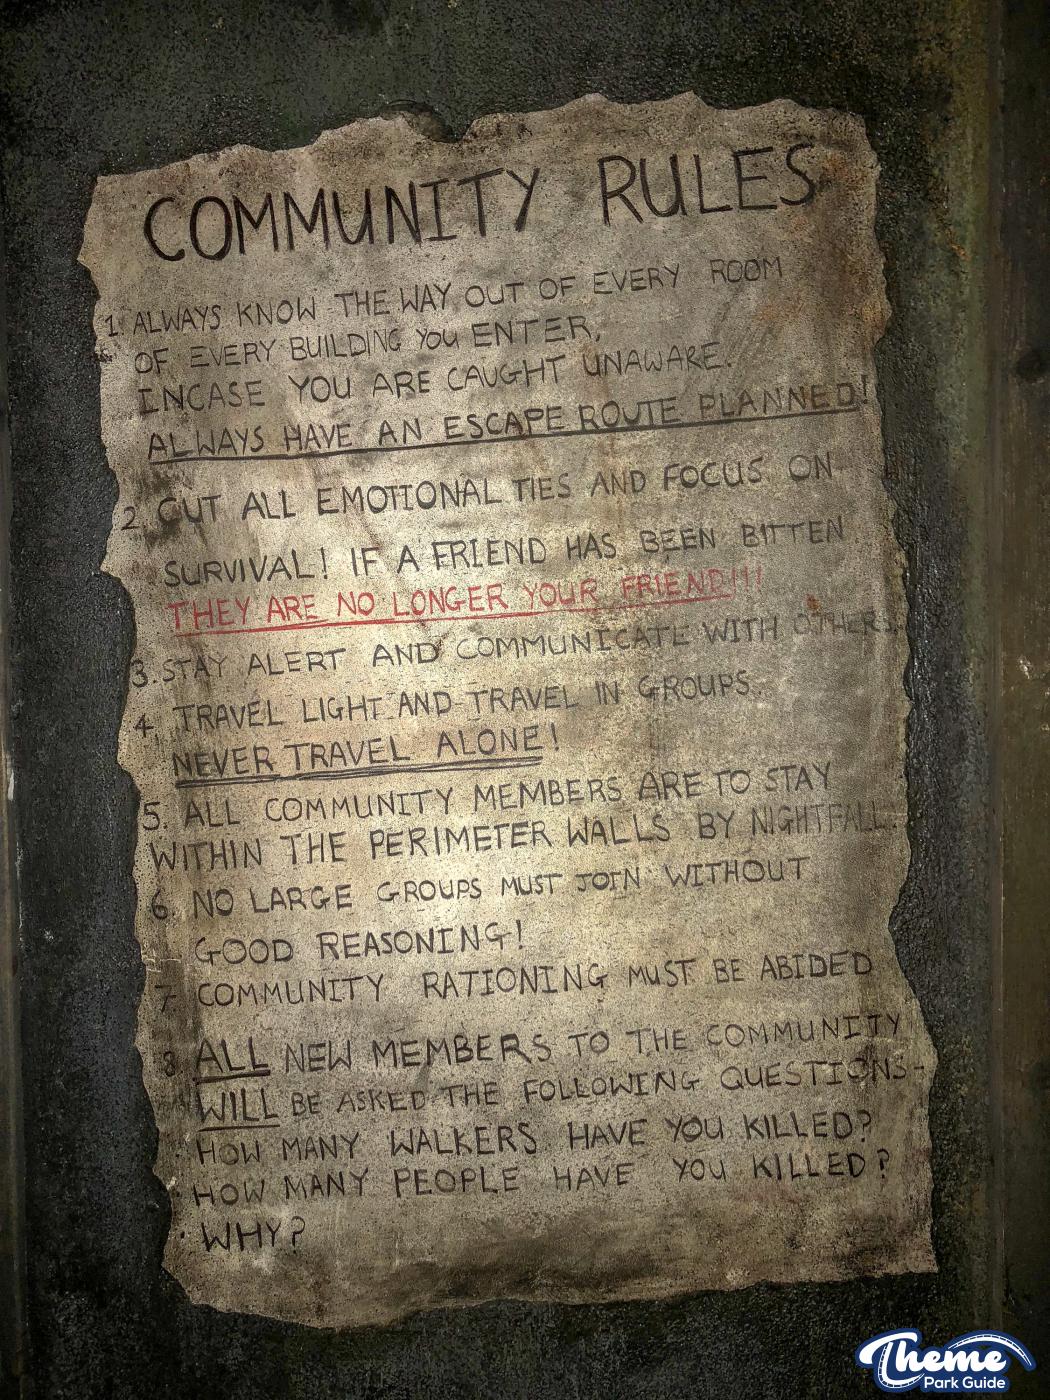 COMMUNITY RULES
1. ALWAYS KNOW THE WAY OUT OF EVERY ROOM
OF EVERY BUILDING YOU ENTER,
INCASE YOU ARE CAUGHT UNAWARE.
ALWAYS HAVE AN ESCAPE ROUTE PLANNED!
2. CUT ALL EMOTIONAL TIES AND FOCUS ON
SURVIVAL! IF A FRIEND HAS BEEN BITTEN
THEY ARE NO LONGER YOUR FRIEND!!!
3. STAY ALERT AND COMMUNICATE WITH OTHERS.
4. TRAVEL LIGHT AND TRAVEL IN GROUPS.
NEVER TRAVEL ALONE!
5. ALL COMMUNITY MEMBERS ARE TO STAY
WITHIN THE PERIMETER WALLS BY NIGHTFALL.
6. NO LARGE GROUPS MUST JOIN WITHOUT
GOOD REASONING!
7. COMMUNITY RATIONING MUST BE ABIDED
8. ALL NEW MEMBERS TO THE COMMUNITY
WILL BE ASKED THE FOLLOWING QUESTIONS-
· HOW MANY WALKERS HAVE YOU KILLED?
· HOW MANY PEOPLE HAVE YOU KILLED?
· WHY?
Theme
Park Guide